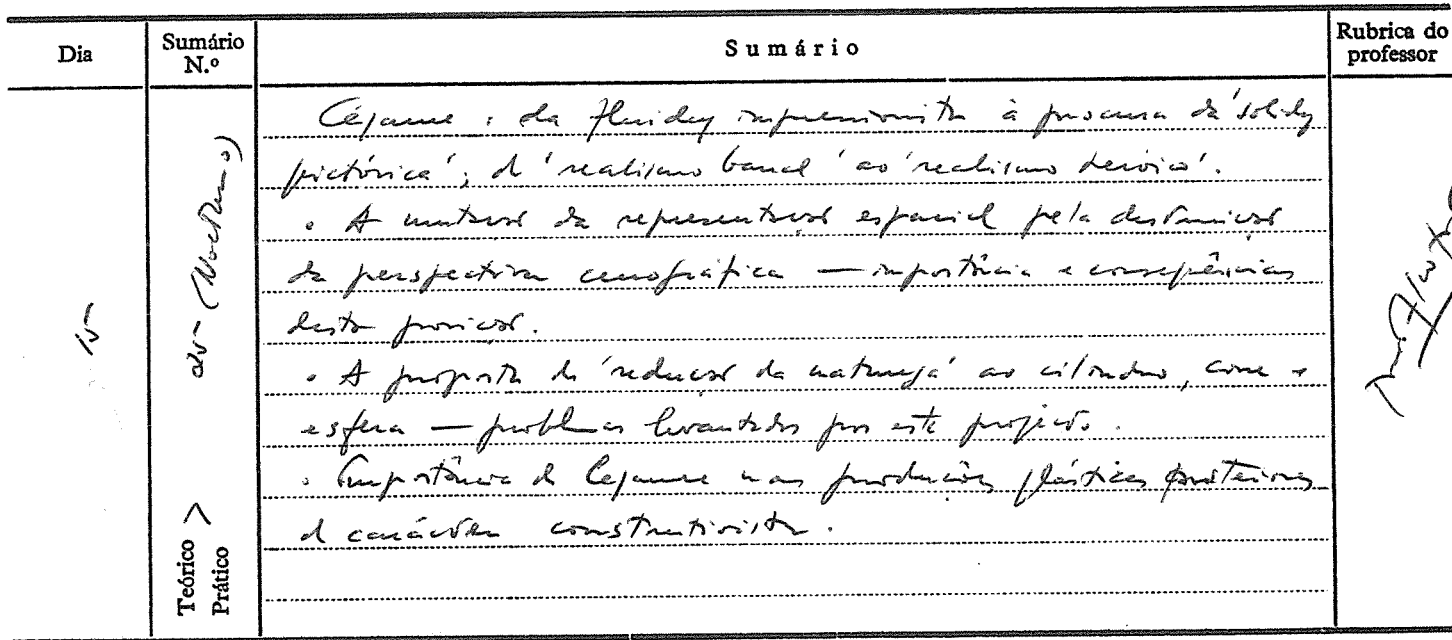 Dia
Sumário N.º
Sumário
Rubrica do professor
Cézanne: da fluidez impressionista à procura da 'solidez
pictórica'; do 'realismo banal' ao 'realismo heróico'.
• A mutação da representação espacial pela destruição
da perspectiva cenográfica — importância e consequências
desta posição.
• A proposta de 'redução da natureza' ao cilindro, cone e
esfera — problemas levantados por este projecto.
• Importância de Cézanne nas produções plásticas posteriores
de carácter construtivista.
15
(Nocturno)
Teórico >
Prático